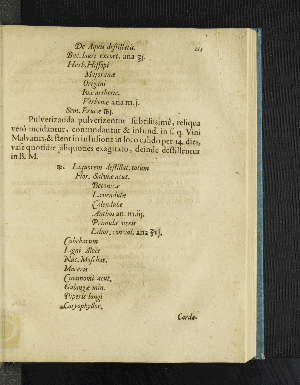 De Aquis destillatis. 213
Bac. lauri excort. ana ʒj.
Herb. Hissopi
Majoranæ
Origani
Ivæ arthetic.
Verbenæ ana m.j.
Sem. Erucæ ℔j.
Pulverizanda pulverizentur subtilissimè, reliqua
verò incidantur, contundantur & infund. in s. q. Vini
Malvatici, & stent in infusione in loco calido per 14. dies,
vase quotidie aliquoties exagitato, deinde destillentur
in B. M.
Liquorem destillat. totum
Flor. Salviæ acut.
Betonicæ
Lavendulæ
Calendulæ
Anthos an. m.iij.
Primulæ veris
Lilior. convall. ana
Cubebarum
Ligni Aloës
Nuc. Moschat.
Maceris
Cinamomi acut.
Galangæ min.
Piperis longi
Caryophyllor.
Carda-